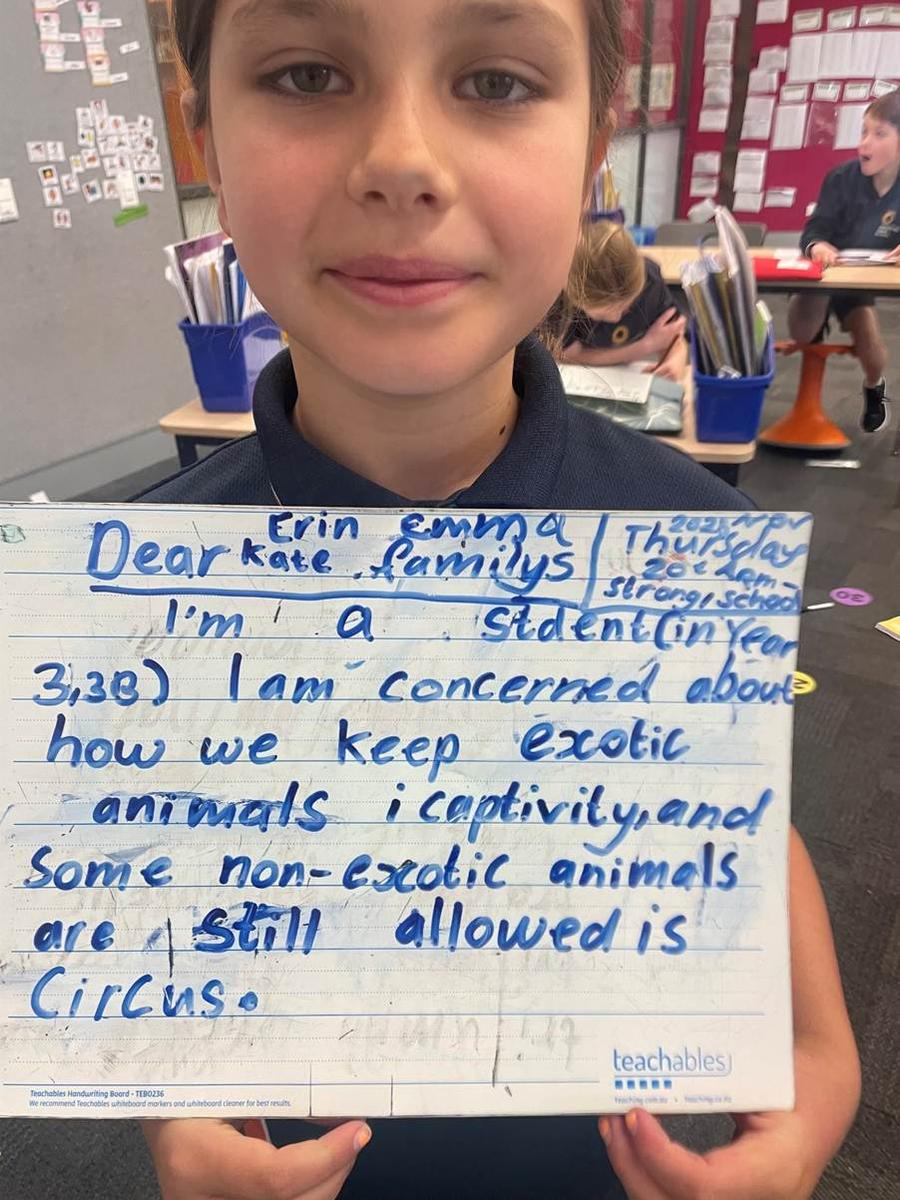 Erin Emma
Dear Kate familys
Thursday
Strong, School
I'm a stdent (in Year
3,3B) I am concerned about
how we keep exotic
animals i captivity, and
some non-exotic animals
are still allowed is
Circus.
teachables
Teachables Handwriting Board - TEBO236
We recommend Teachables whiteboard markers and whiteboard cleaner for best results.
teaching.com.au teaching.co.nz